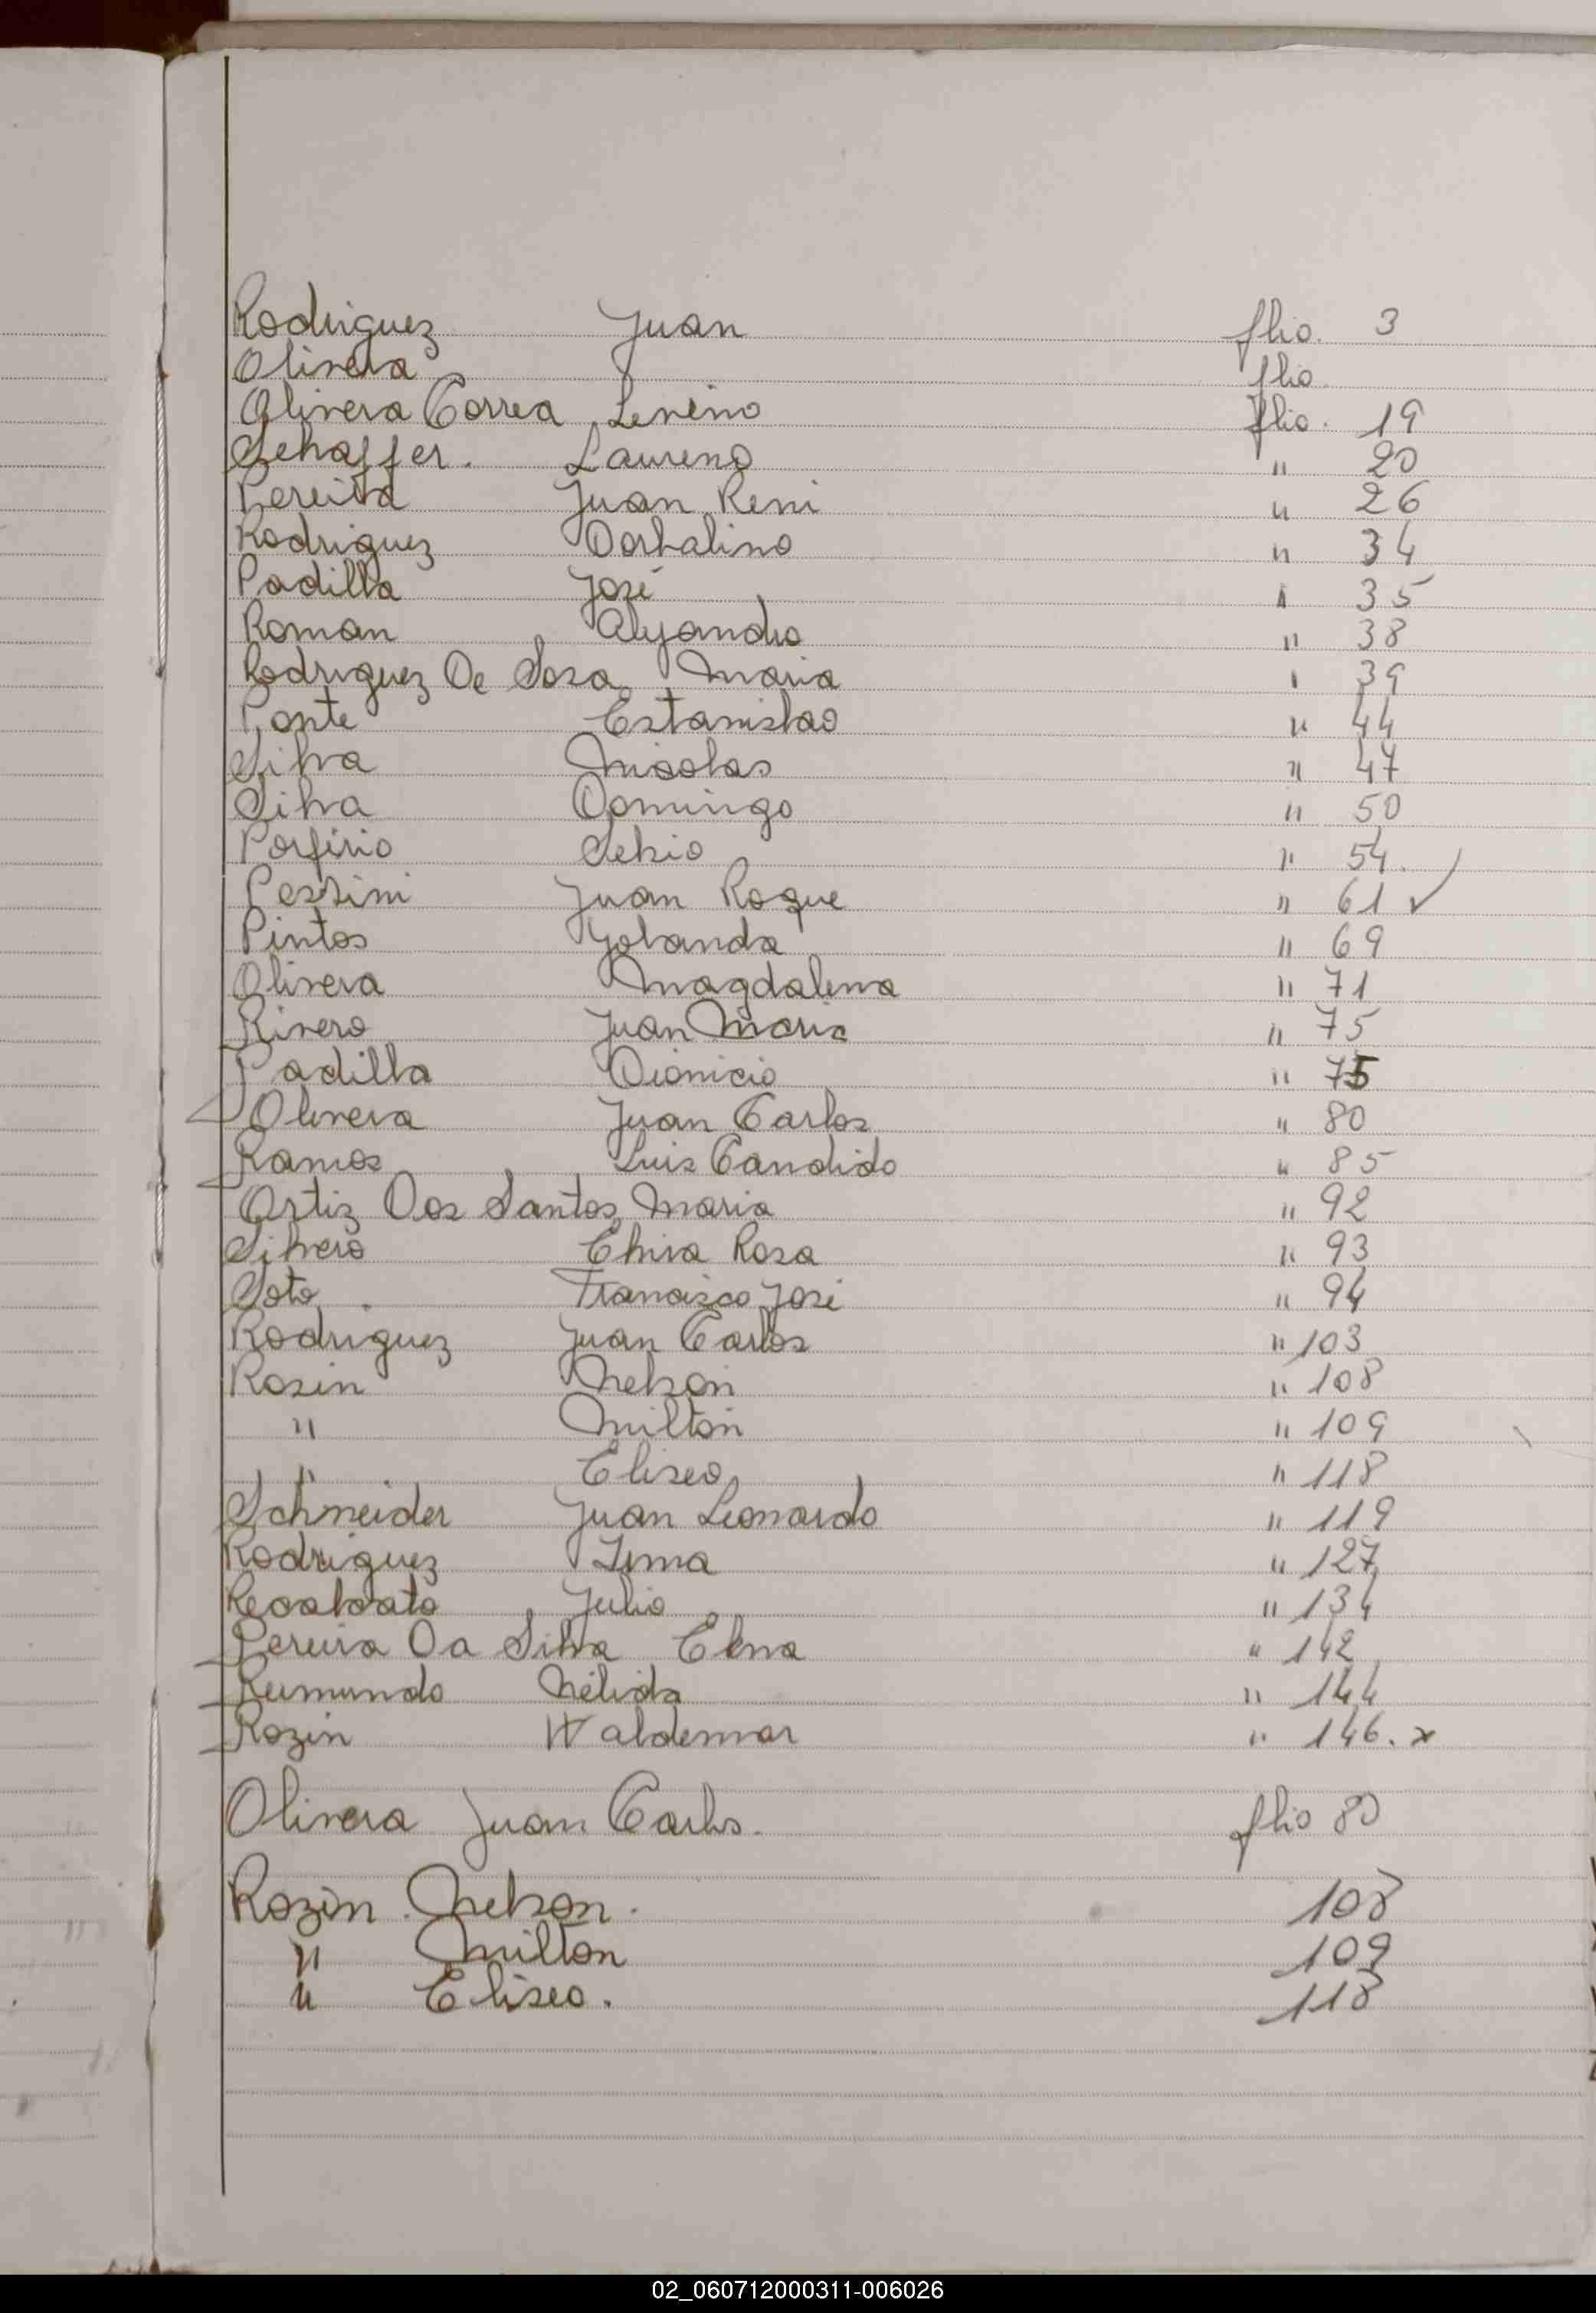 Rodriguez Juan flio. 3
Olivera flio.
Olivera Correa Levino flio. 19
Schaffer. Laureno " 20
Pereira Juan Reni " 26
Rodriguez Dorbalino " 34
Padilla José " 35
Roman Alejandro " 38
Rodriguez De Sosa Maria " 39
Ponte Estanislao " 44
Silva Nicolas " 47
Silva Domingo " 50
Porfirio Selvio " 54.
Pessini Juan Roque " 61 ✓
Pintos Yolanda " 69
Olivera Magdalena " 71
Rivero Juan Maria " 75
Padilla Dionicio " 75
Olivera Juan Carlos " 80
Ramos Luis Candido " 85
Ortiz Dos Santos Maria " 92
Silvero Elvira Rosa " 93
Soto. Francisco José " 94
Rodriguez Juan Carlos " 103
Rosin Nelson " 108
" Milton " 109
" Eliseo " 118
Schneider Juan Leonardo " 119
Rodriguez Irma " 127
Recalcato Julio " 134
Pereira Da Silva Elena " 142
Reimundo Nélida " 144
Rozin Waldemar " 146. x
Olivera Juan Carlos. flio 80
Rozin. Nelson. 108
" Milton 109
" Eliseo. 118
02_060712000311-006026